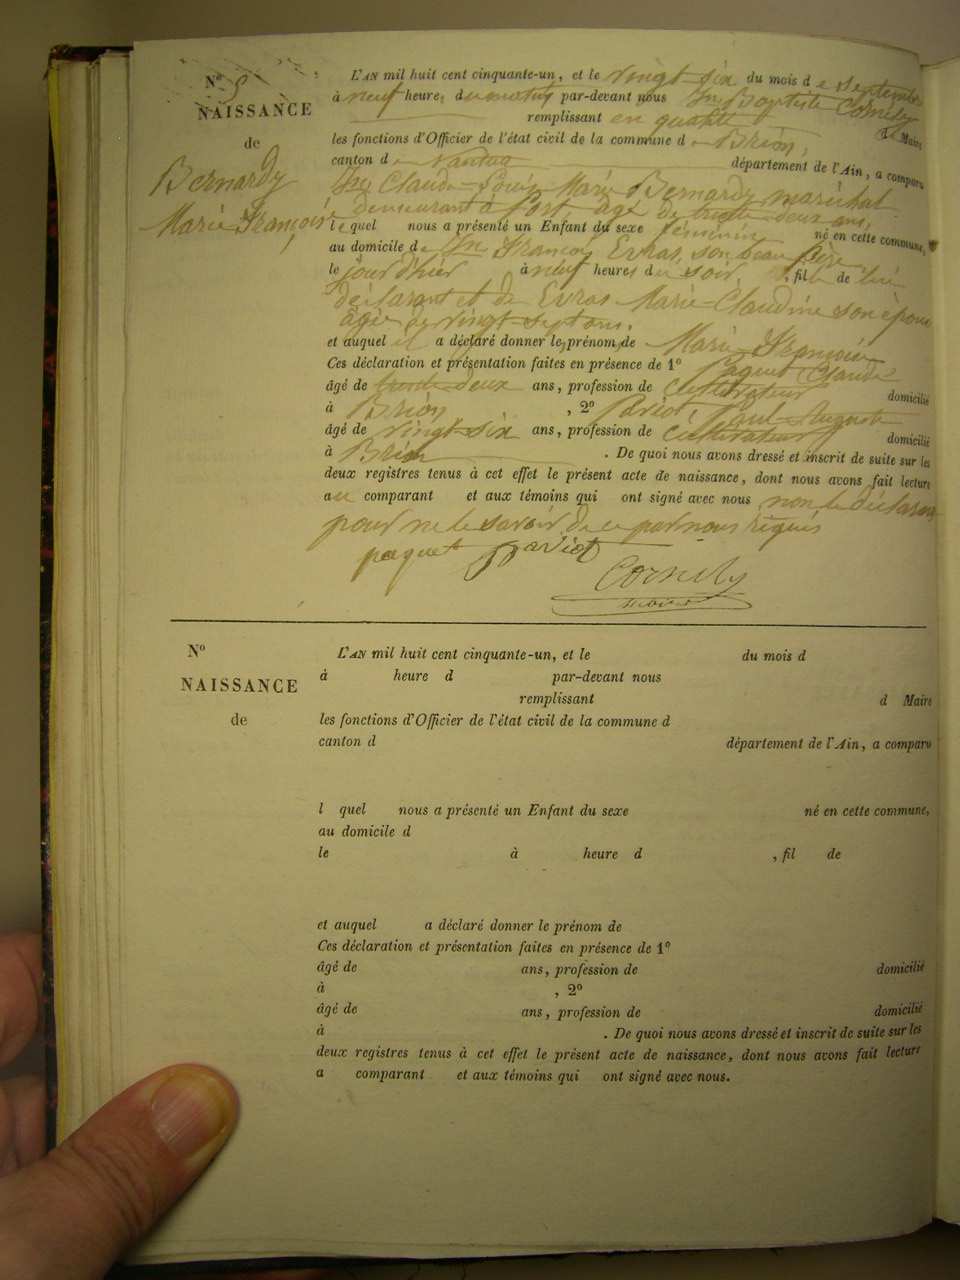 No 9
NAISSANCE
de
Bernardy
Marie Françoise
L'AN mil huit cent cinquante-un, et le vingt six du mois de septembre
à neuf heures du matin par-devant nous Jn Baptiste Cornely
remplissant en qualité d Maire
les fonctions d'Officier de l'état civil de la commune de Brion,
canton de Nantua département de l'Ain, a comparu
Claude Louis Marie Bernardy, maréchal
demeurant à Port âgé de trente deux ans,
lequel nous a présenté un Enfant du sexe féminin né en cette commune,
au domicile de Jn François Evras, son beau père
le jour d'hier à neuf heures du soir, fille de lui
déclarant et de Evras Marie Claudine son épouse
âgée de vingt-sept ans.
et auquel il a déclaré donner le prénom de Marie Françoise
Ces déclaration et présentation faites en présence de 1º Paquet Claude
âgé de trente-deux ans, profession de cultivateur domicilié
à Brion, 2º Pariot, Paul Auguste
âgé de vingt-six ans, profession de cultivateur domicilié
à Brion. De quoi nous avons dressé et inscrit de suite sur les
deux registres tenus à cet effet le présent acte de naissance, dont nous avons fait lecture
au comparant et aux témoins qui ont signé avec nous non le déclarant
pour ne le savoir de ce par nous requis
paquet pariot
Cornely
maire
No
NAISSANCE
de
L'AN mil huit cent cinquante-un, et le du mois d
à heure d par-devant nous
remplissant d Maire
les fonctions d'Officier de l'état civil de la commune d
canton d département de l'Ain, a comparu
l quel nous a présenté un Enfant du sexe né en cette commune,
au domicile d
le à heure d , fil de
et auquel a déclaré donner le prénom de
Ces déclaration et présentation faites en présence de 1º
âgé de ans, profession de domicilié
à , 2º
âgé de ans, profession de domicilié
à . De quoi nous avons dressé et inscrit de suite sur les
deux registres tenus à cet effet le présent acte de naissance, dont nous avons fait lecture
a comparant et aux témoins qui ont signé avec nous.